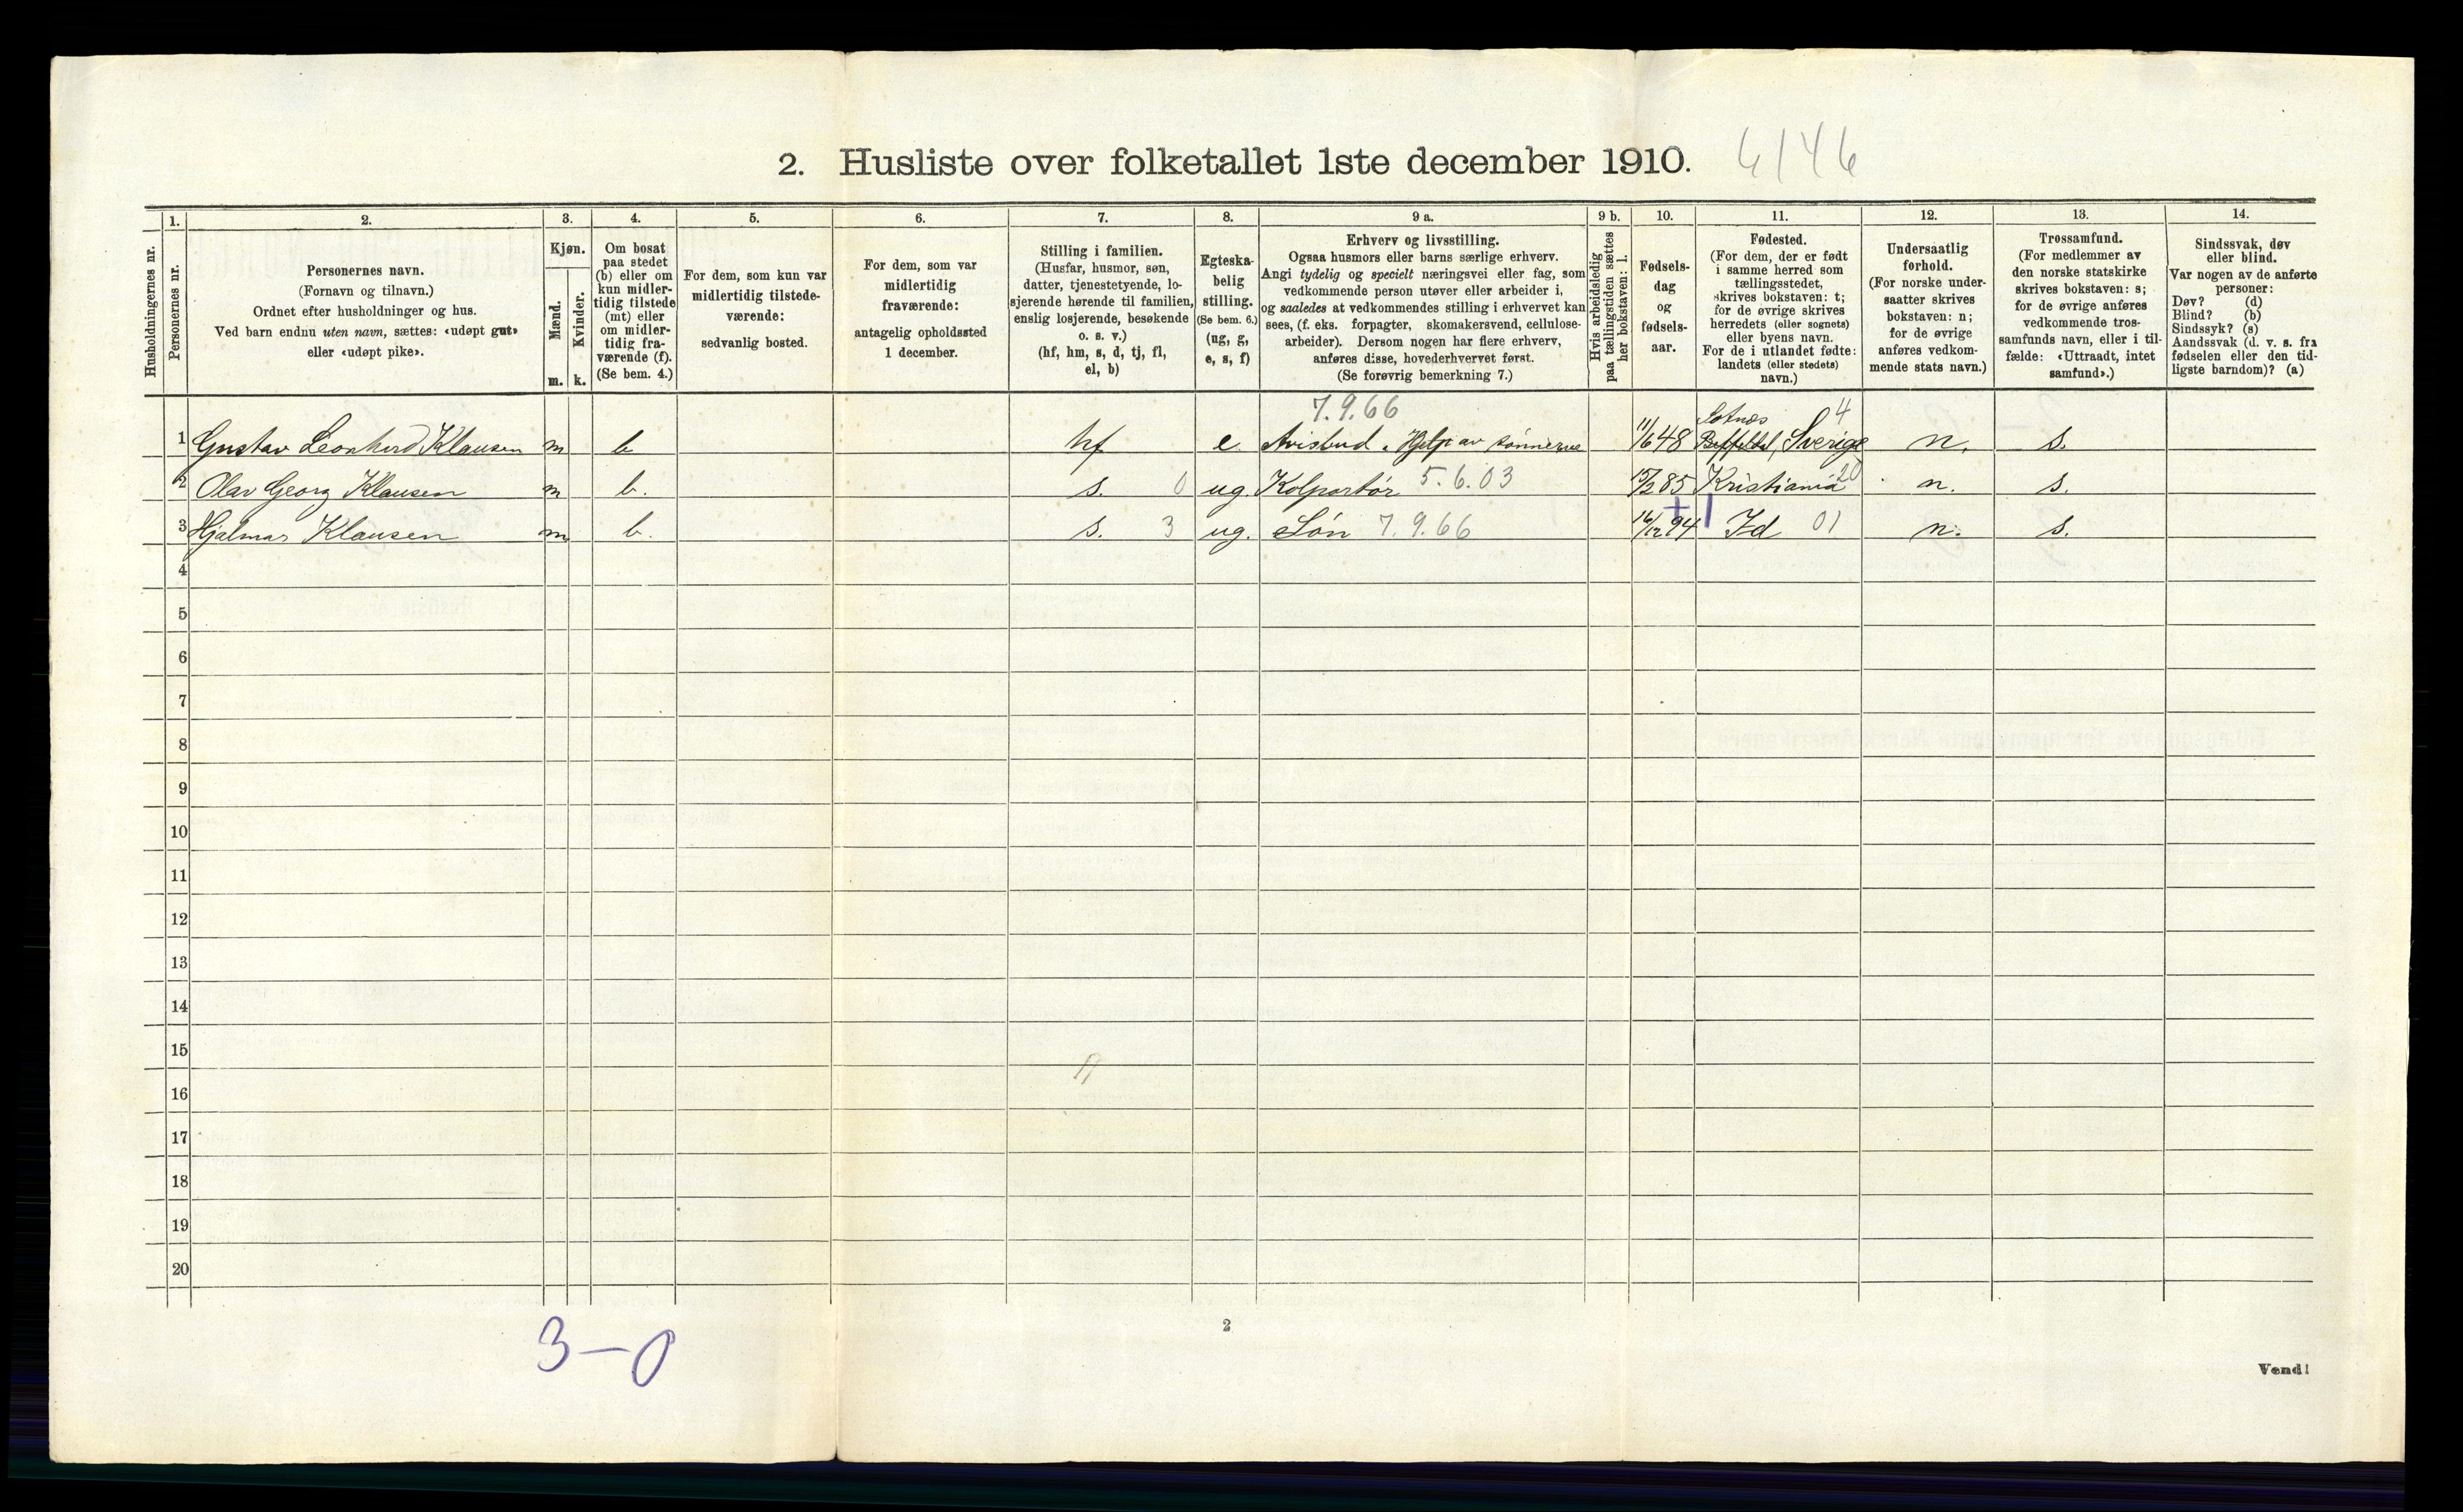 2. Husliste over folketallet 1ste december 1910. 4146
1. 2. 3. 4. 5. 6. 7. 8. 9 a. 9 b. 10. 11. 12. 13. 14.
Husholdningernes nr.
Personernes nr.
Personernes navn.
(Fornavn og tilnavn.)
Ordnet efter husholdninger og hus.
Ved barn endnu uten navn, sættes: «udøpt gut»
eller «udøpt pike».
Kjøn.
Mænd.
Kvinder.
m. k.
Om bosat
paa stedet
(b) eller om
kun midler-
tidig tilstede
(mt) eller
om midler-
tidig fra-
værende (f).
(Se bem. 4.)
For dem, som kun var
midlertidig tilstede-
værende:
sedvanlig bosted.
For dem, som var
midlertidig
fraværende:
antagelig opholdssted
1 december.
Stilling i familien.
(Husfar, husmor, søn,
datter, tjenestetyende, lo-
sjerende hørende til familien,
enslig losjerende, besøkende
o. s. v.)
(hf, hm, s, d, tj, fl,
el, b)
Egteska-
belig
stilling.
(Se bem. 6.)
(ug, g,
e, s, f)
Erhverv og livsstilling.
Ogsaa husmors eller barns særlige erhverv.
Angi tydelig og specielt næringsvei eller fag, som
vedkommende person utøver eller arbeider i,
og saaledes at vedkommendes stilling i erhvervet kan
sees, (f. eks. forpagter, skomakersvend, cellulose-
arbeider). Dersom nogen har flere erhverv,
anføres disse, hovederhvervet først.
(Se forøvrig bemerkning 7.)
Hvis arbeidsledig
paa tællingstiden sættes
her bokstaven: l.
Fødsels-
dag
og
fødsels-
aar.
Fødested.
(For dem, der er født
i samme herred som
tællingsstedet,
skrives bokstaven: t;
for de øvrige skrives
herredets (eller sognets)
eller byens navn.
For de i utlandet fødte:
landets (eller stedets)
navn.)
Undersaatlig
forhold.
(For norske under-
saatter skrives
bokstaven: n;
for de øvrige
anføres vedkom-
mende stats navn.)
Trossamfund.
(For medlemmer av
den norske statskirke
skrives bokstaven: s;
for de øvrige anføres
vedkommende tros-
samfunds navn, eller i til-
fælde: «Uttraadt, intet
samfund».)
Sindssvak, døv
eller blind.
Var nogen av de anførte
personer:
Døv? (d)
Blind? (b)
Sindssyk? (s)
Aandssvak (d. v. s. fra
fødselen eller den tid-
ligste barndom)? (a)
7.9.66 4
1 Gustav Leonhard Klausen m b hf e. Avisbud. Hjelp av sønnerne 11/6 48 Sverige n. s.
2 Olav Georg Klausen m b. s. 0 ug. Kolportør 5.6.03 15/2 85 Kristiania 20 n. s.
3 Hjalmar Klausen m b. s. 3 ug. Søn 7.9.66 16/12 94 Id 01 n. s.
4
5
6
7
8
9
10
11
12
13
14
15
16
17
18
19
20
3-0
2
Vend!